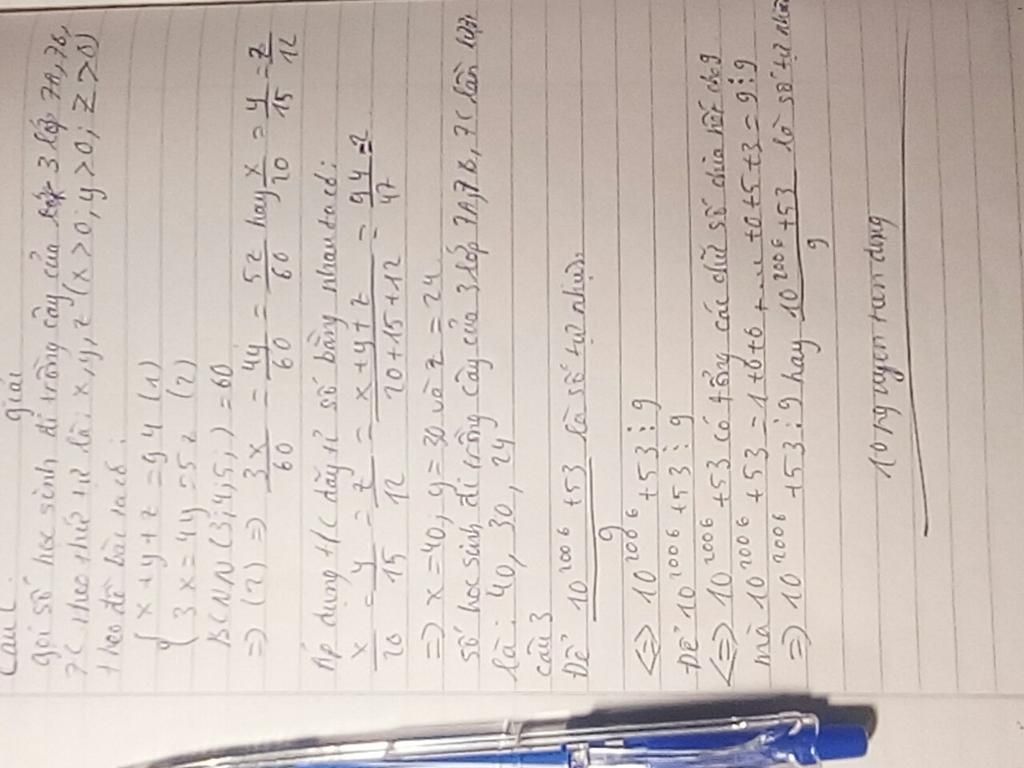 Câu 2
giải
gọi số học sinh đi trồng cây của 3 lớp 7A, 7B,
7C theo thứ tự là x, y, z (x>0; y>0; z>0)
theo đề bài ta có:
{ x + y + z = 94 (1)
{ 3x = 4y = 5z (2)
BCNN (3; 4; 5;) = 60
=> (2) => 3x/60 = 4y/60 = 5z/60 hay x/20 = y/15 = z/12
Áp dụng t/c dãy tỉ số bằng nhau ta có:
x/20 = y/15 = z/12 = x+y+z/20+15+12 = 94/47 = 2
=> x = 40, y = 30 và z = 24
số học sinh đi trồng cây của 3 lớp 7A, 7B, 7C lần lượt
là: 40, 30, 24
câu 3
Để 10²⁰⁰⁶ + 53/9 là số tự nhiên
<=> 10²⁰⁰⁶ + 53 ⋮ 9
Để 10²⁰⁰⁶ + 53 ⋮ 9
<=> 10²⁰⁰⁶ + 53 có tổng các chữ số chia hết cho 9
mà 10²⁰⁰⁶ + 53 = 1 + 0 + 0 + ... + 0 + 5 + 3 = 9 ⋮ 9
=> 10²⁰⁰⁶ + 53 ⋮ 9 hay 10²⁰⁰⁶ + 53/9 là số tự nhiên